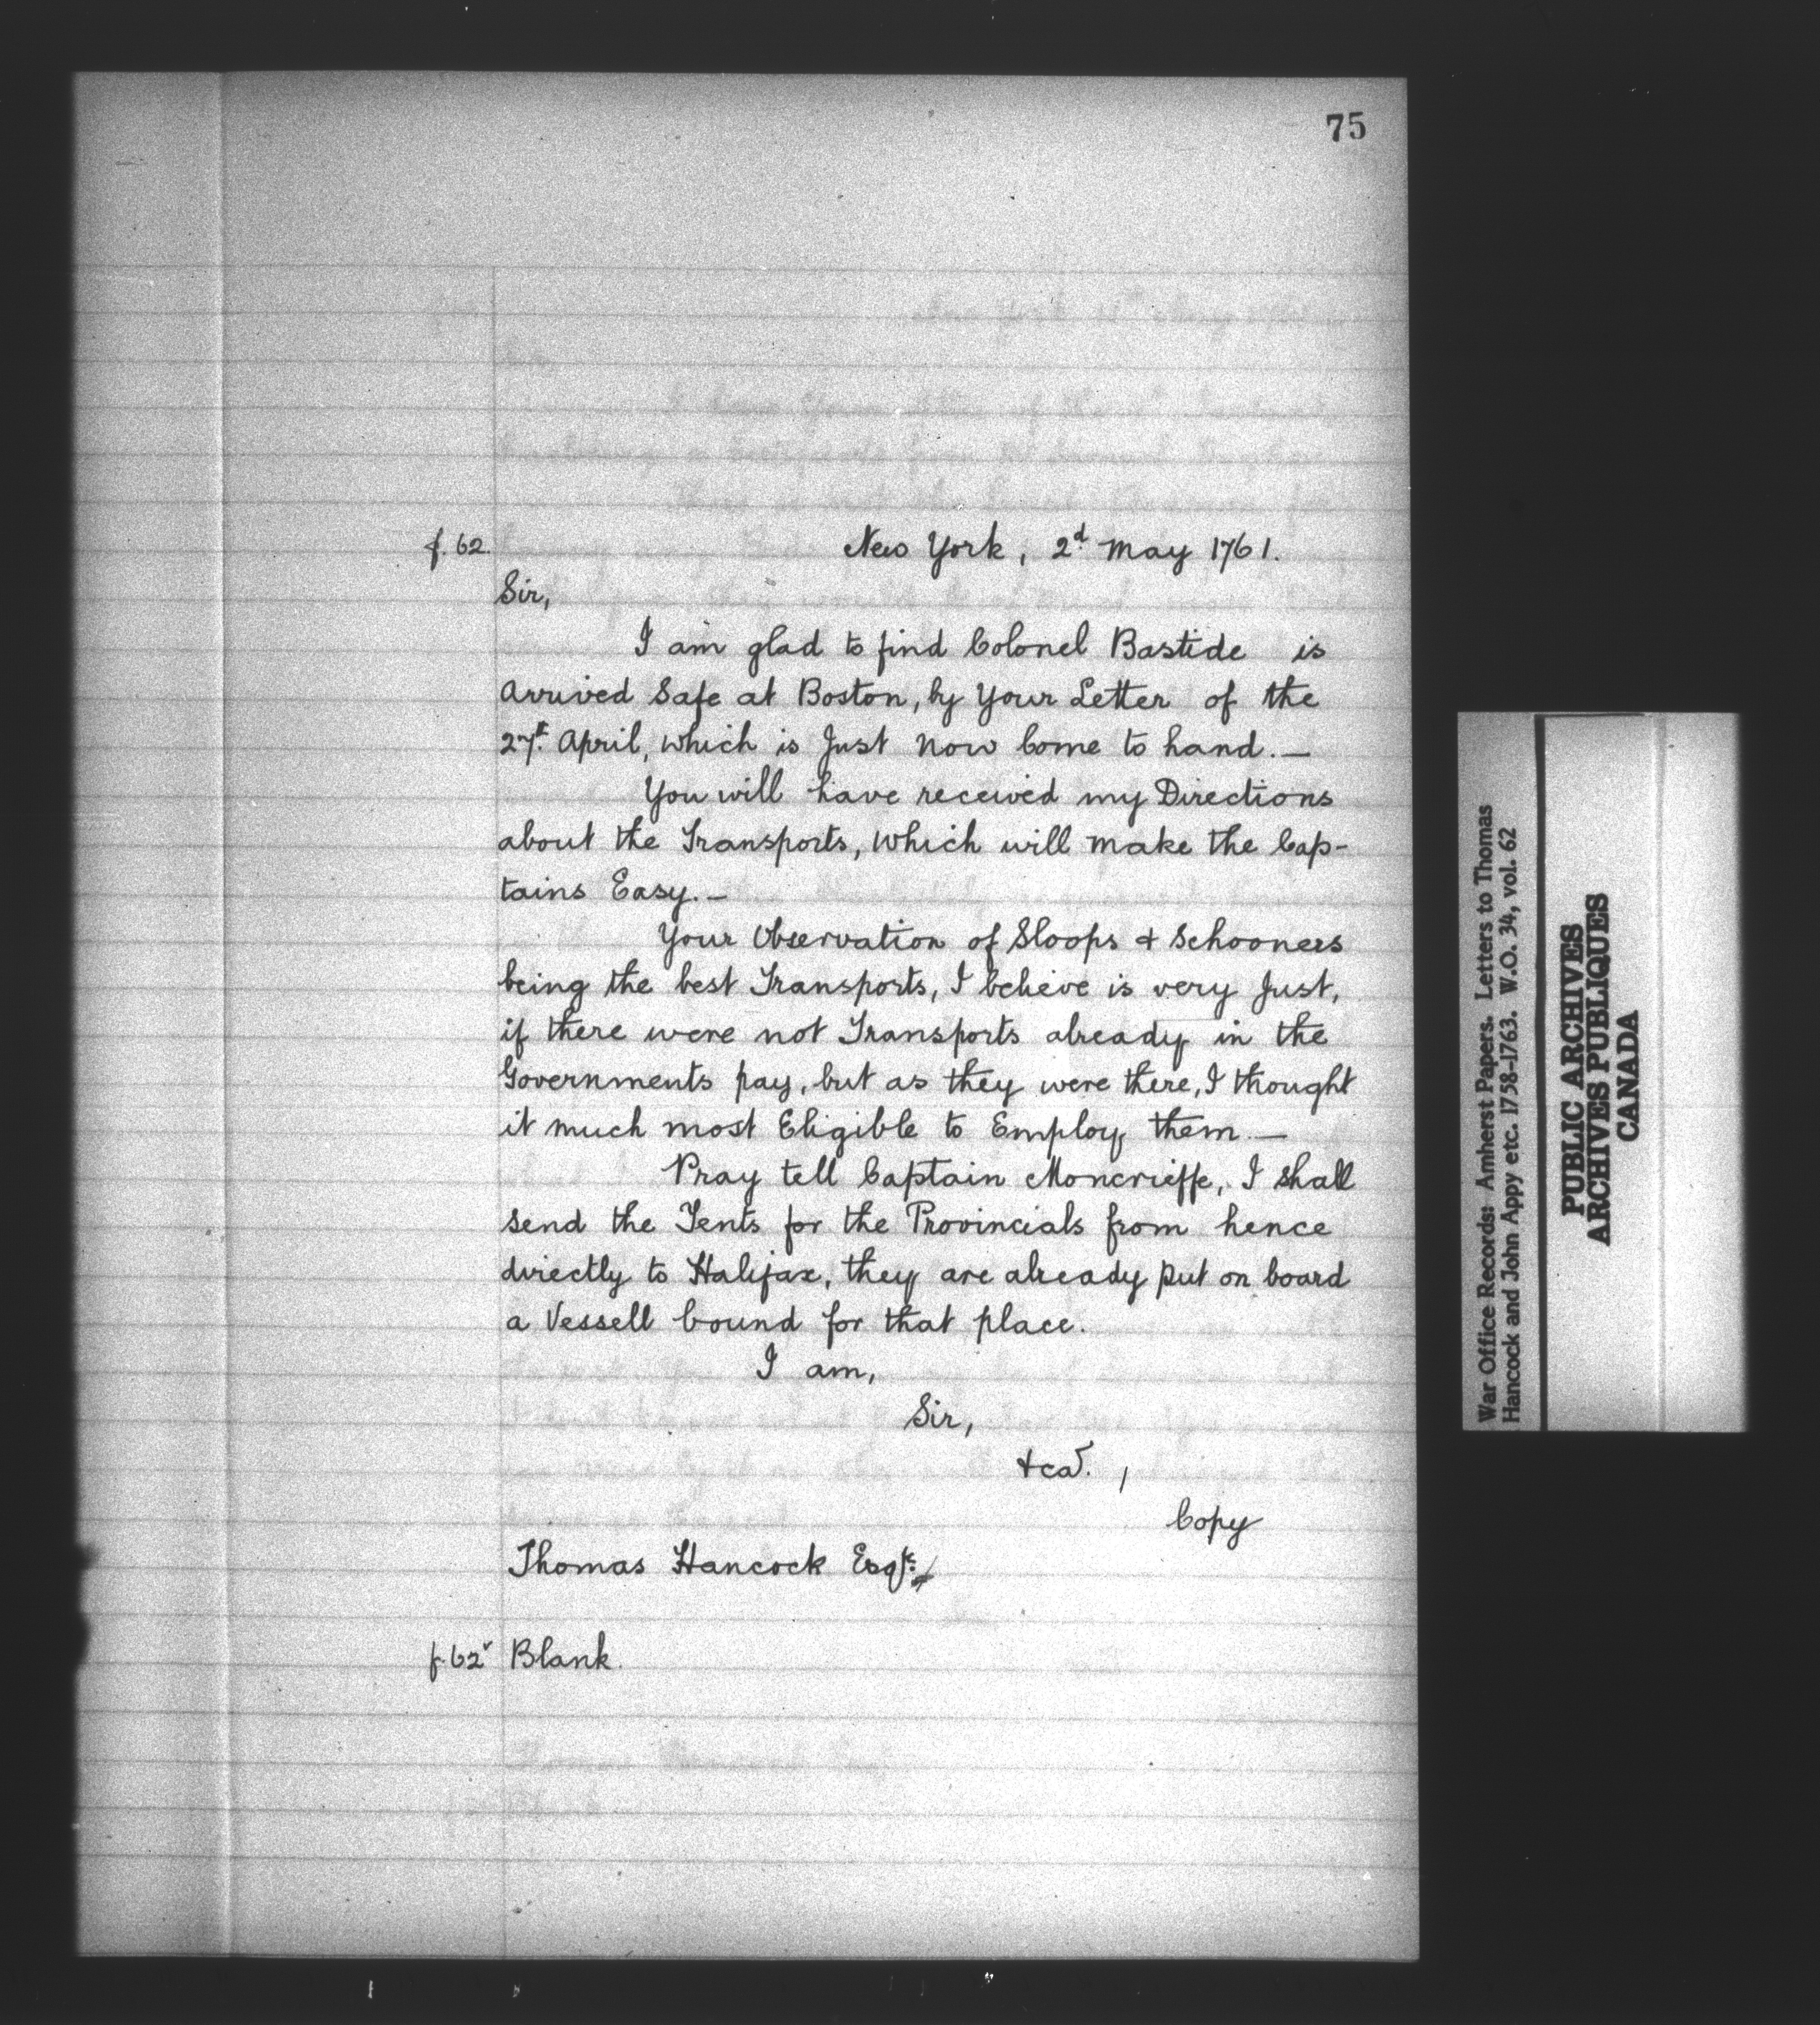 75
f. 62. New York, 2d May 1761.
Sir,
I am glad to find Colonel Bastide is
arrived Safe at Boston, by Your Letter of the
27th April, which is Just now Come to hand. —
You will have received my Directions
about the Transports, which will make the Cap-
tains Easy. —
Your Observation of Sloops & Schooners
being the best Transports, I believe is very Just,
if there were not Transports already in the
Governments pay, but as they were there, I thought
it much most Eligible to Employ them. —
Pray tell Captain Moncrieffe, I shall
send the Tents for the Provincials from hence
directly to Halifax, they are already put on board
a Vessell bound for that place.
I am,
Sir,
&ca. ,
Copy
Thomas Hancock Esqr.
f. 62v Blank.
War Office Records: Amherst Papers. Letters to Thomas
Hancock and John Appy etc. 1758-1763. W.O. 34, vol. 62
PUBLIC ARCHIVES
ARCHIVES PUBLIQUES
CANADA